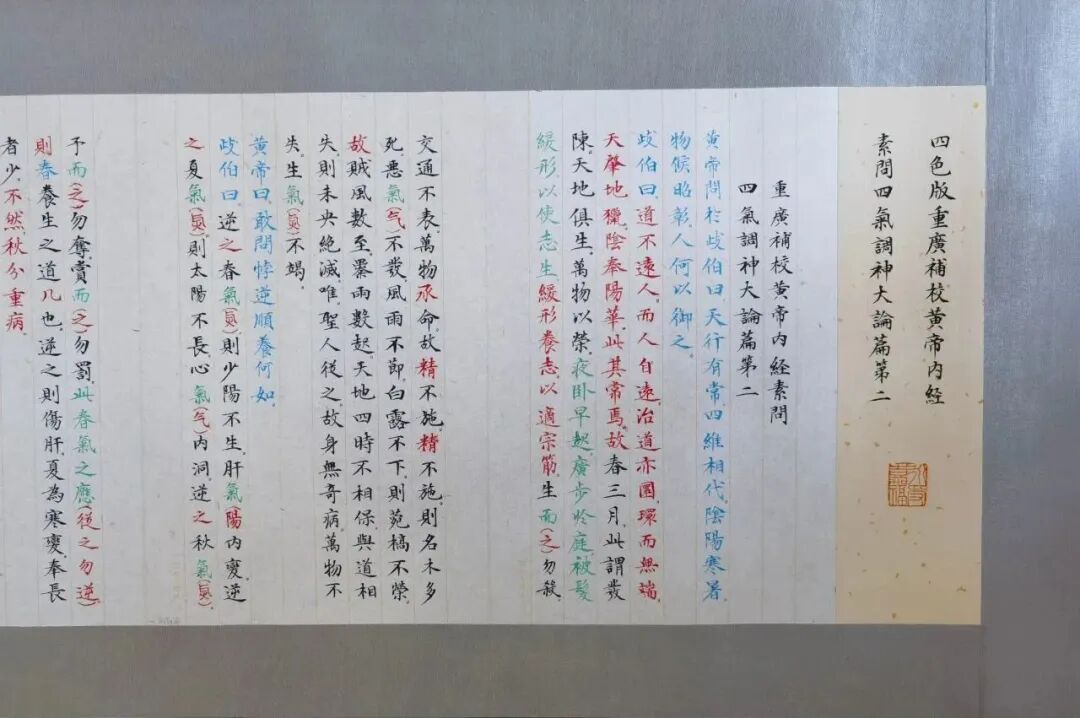 四色版重廣補校黃帝内经
素問四氣調神大論篇第二
重廣補校黃帝内经素問
四氣調神大論篇第二
黃帝問於歧伯曰，天行有常，四維相代，陰陽寒暑，
物候昭彰，人何以御之。
歧伯曰，道不遠人，而人自遠，治道亦圜，環而無端，
天肇地玀，陰奉陽華，此其常焉，故春三月，此謂發
陳，天地俱生，萬物以榮，夜卧早起，廣步於庭，被髮
緩形，以使志生，緩形養志，以適宗筋，生而(之)勿殺，
予而(之)勿奪，賞而(之)勿罰，此春氣之應(從之勿逆)
則春養生之道几也，逆之則傷肝，夏為寒變，奉長
者少，不然，秋分重病，
交通不表，萬物承命，故精不施，精不施，則名木多
死，惡氣(气)不發，風雨不節，白露不下，則菀槁不榮，
故賊風數至，暴雨數起，天地四時不相保，與道相
失，則未央绝滅，唯聖人從之，故身無奇病，萬物不
失，生氣(炁)不竭。
黃帝曰，敢問悖逆順養何如，
歧伯曰，逆之春氣(炁)則少陽不生，肝氣(陽)内變，逆
之夏氣(炁)則太陽不長，心氣(气)内洞，逆之秋氣(炁)，